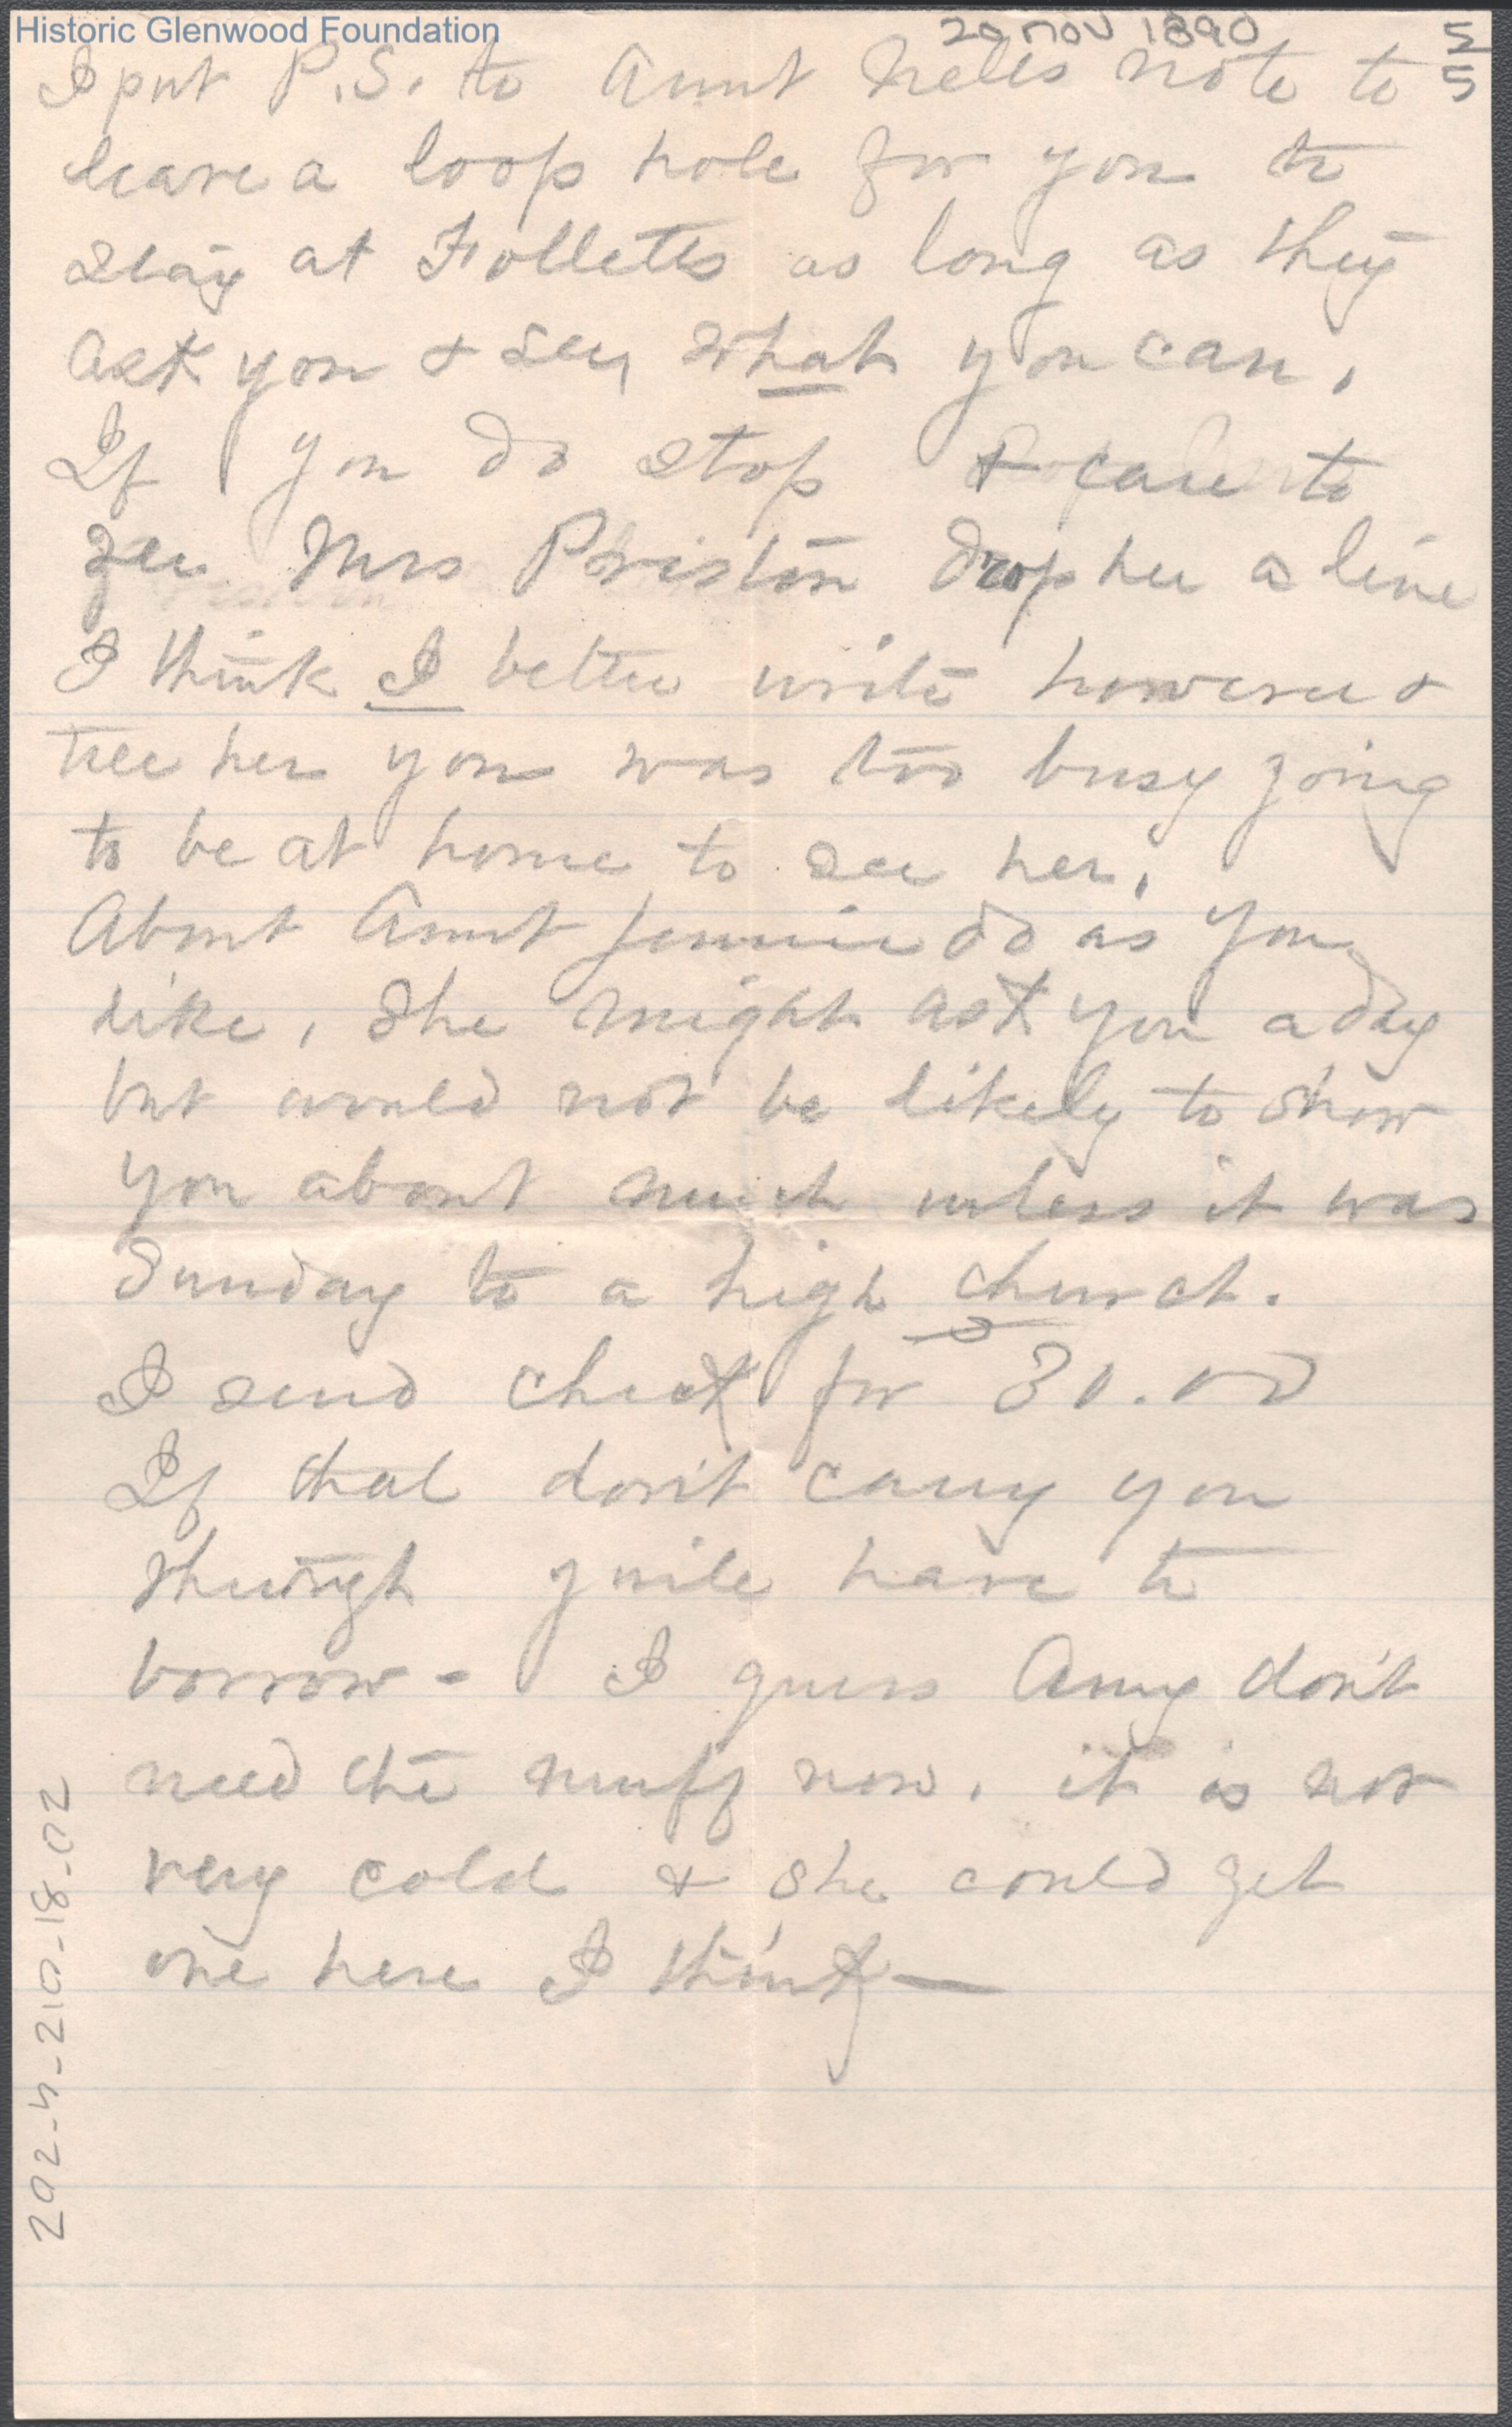 Historic Glenwood Foundation
20 Nov 1890
5/5
I put P.S. to Aunt Nells note to
leave a loop hole for you to
stay at Folletts as long as they
ask you & see, what you can.
If you do stop & care to
see Mrs Preston drop her a line
I think I better write however &
tell her you was too busy going
to be at home to see her.
About Aunt Jennie do as you
like, She might ask you a day
but would not be likely to show
you about much unless it was
Sunday to a high church.
I send check for 30.00
If that don't carry you
through y will have to
borrow - I guess Amy don't
need the muff now. it is not
very cold & she could get
one here I think —
292-4-210-18-02